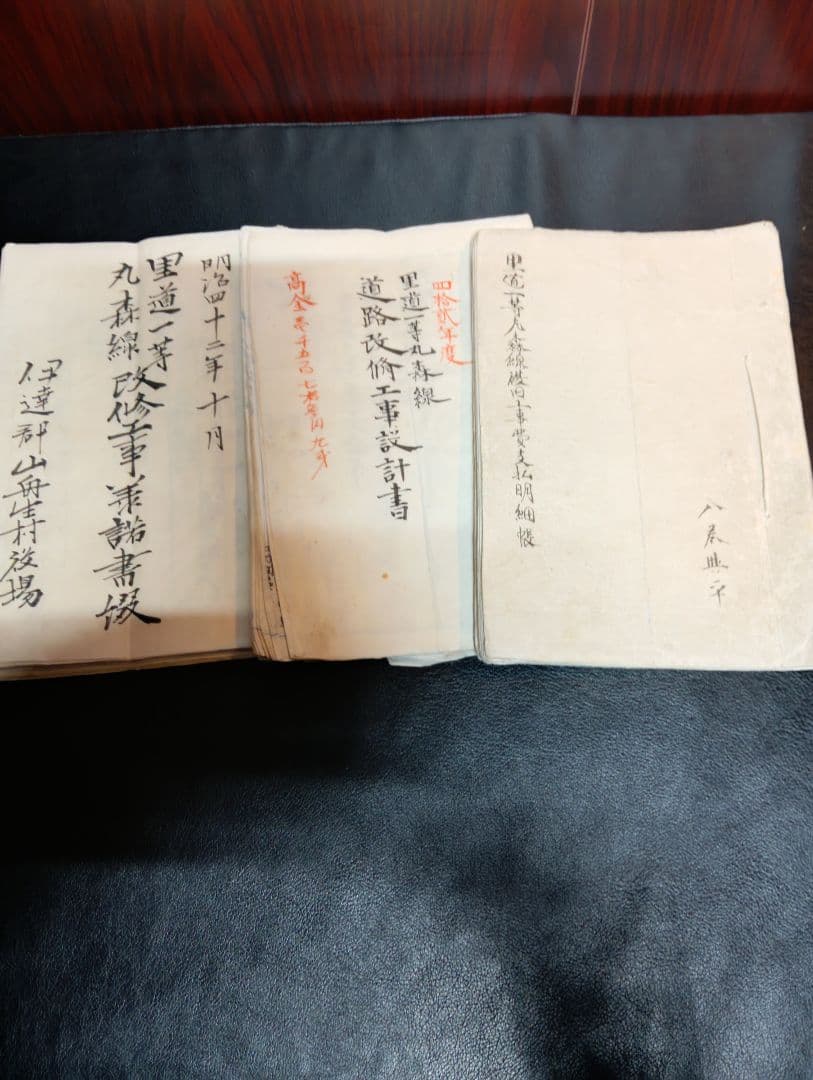 明治四十二年十月
里道一等
丸森線改修工事承諾書綴
伊達郡山舟生村役場
四拾貳年度
里道一等丸森線
道路改修工事設計書
高金壱千五百七拾
里道一等丸森線復旧工事費支払明細帳
八巻興平